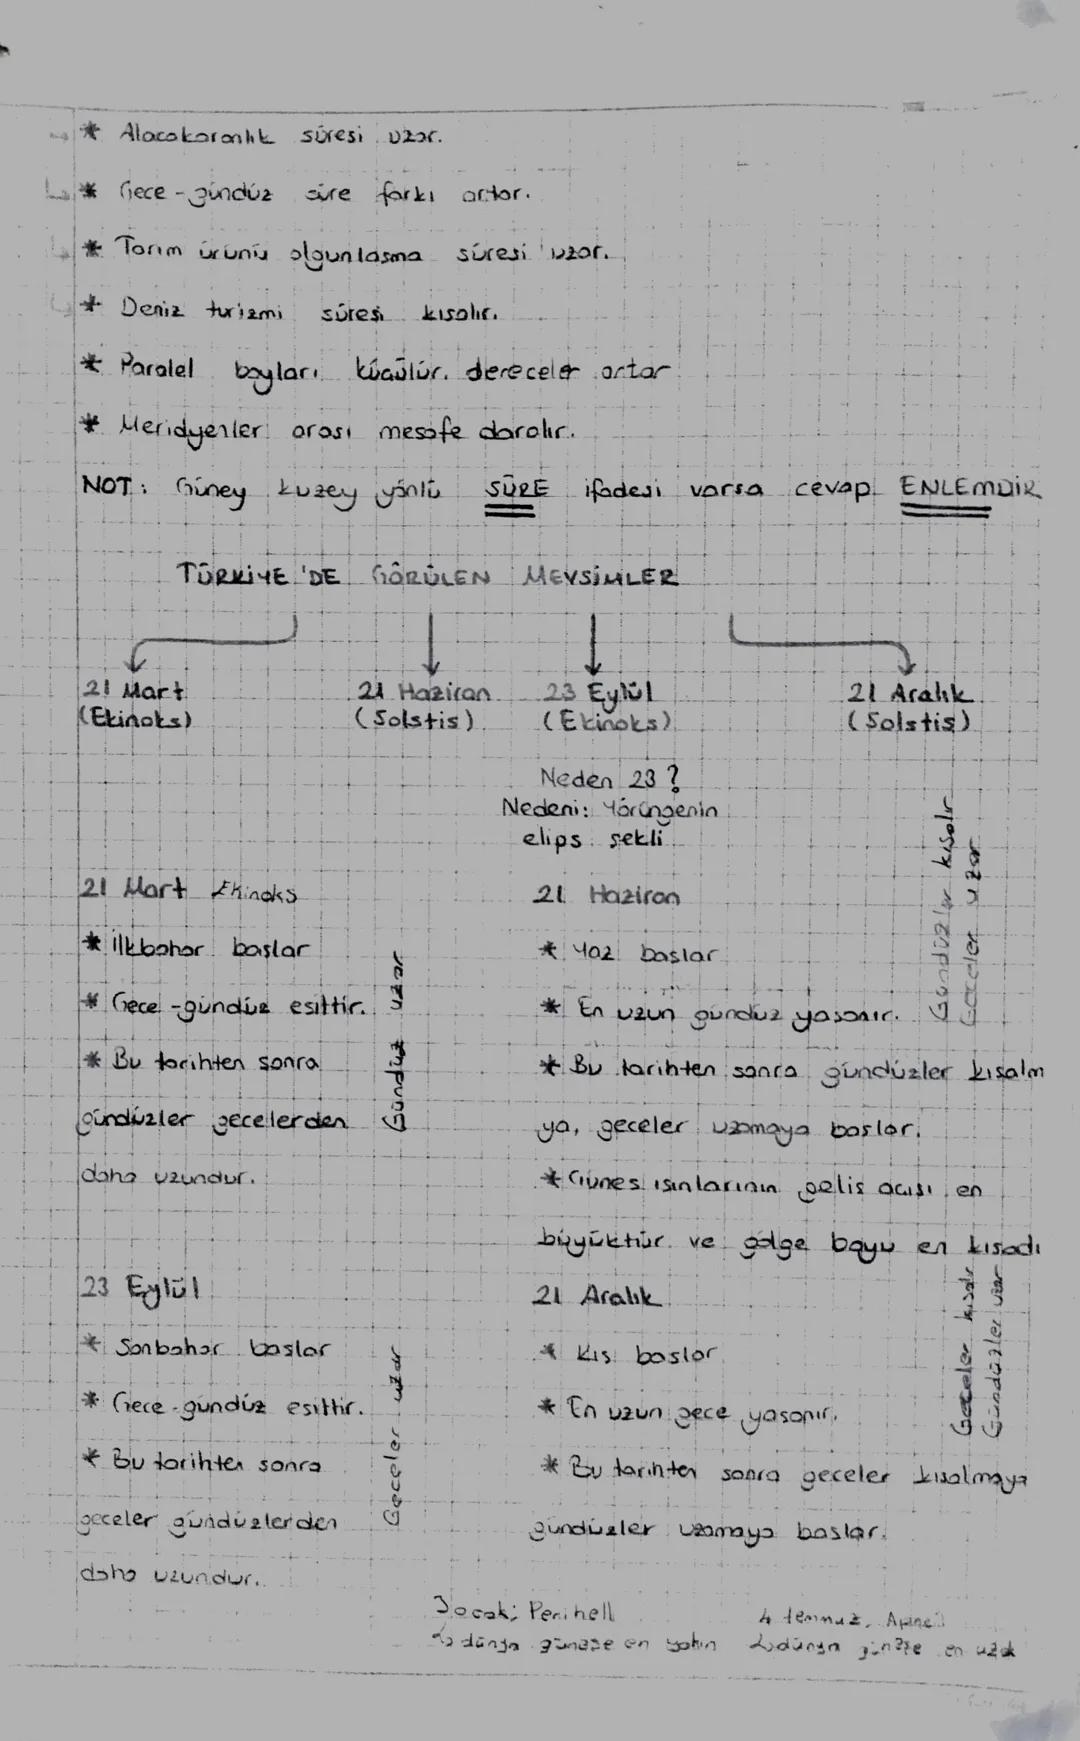 * Alacakaranlık süresi uzar.
* Gece - gündüz süre farkı artar.
* Tarım ürünü olgunlaşma süresi uzar.
* Deniz turizmi süresi kısalır.
* Paralel boyları küçülür. dereceler artar
* Meridyenler arası mesafe daralır.
NOT: Güney kuzey yönlü SÜRE ifadesi varsa cevap ENLEMDİR
TÜRKİYE'DE GÖRÜLEN MEVSİMLER
21 Mart
(Ekinoks)
21 Haziran
(Solstis)
23 Eylül
(Ekinoks)
21 Aralık
(Solstis)
Neden 23?
Nedeni: Yörüngenin
elips şekli
21 Mart Ekinoks
* İlkbahar başlar
* Gece - gündüz eşittir.
* Bu tarihten sonra
gündüzler gecelerden
daha uzundur.
Gündüz uzar
21 Haziran
* Yaz başlar
* En uzun gündüz yaşanır.
* Bu tarihten sonra gündüzler kısalm
ya, geceler uzamaya başlar.
* Güneş ışınlarının geliş açısı en
büyüktür ve gölge boyu en kısadı
Gündüzler kısalır
Geceler uzar
23 Eylül
* Sonbahar başlar
* Gece - gündüz eşittir.
* Bu tarihten sonra
geceler gündüzlerden
daha uzundur.
Geceler uzar
21 Aralık
* Kış başlar
* En uzun gece yaşanır.
* Bu tarihten sonra geceler kısalmaya
gündüzler uzamaya başlar.
Geceler kısalır
Gündüzler uzar
3 ocak; Perihell
↳ dünya güneşe en yakın
4 temmuz,
↳ dünya güneşe en uzak